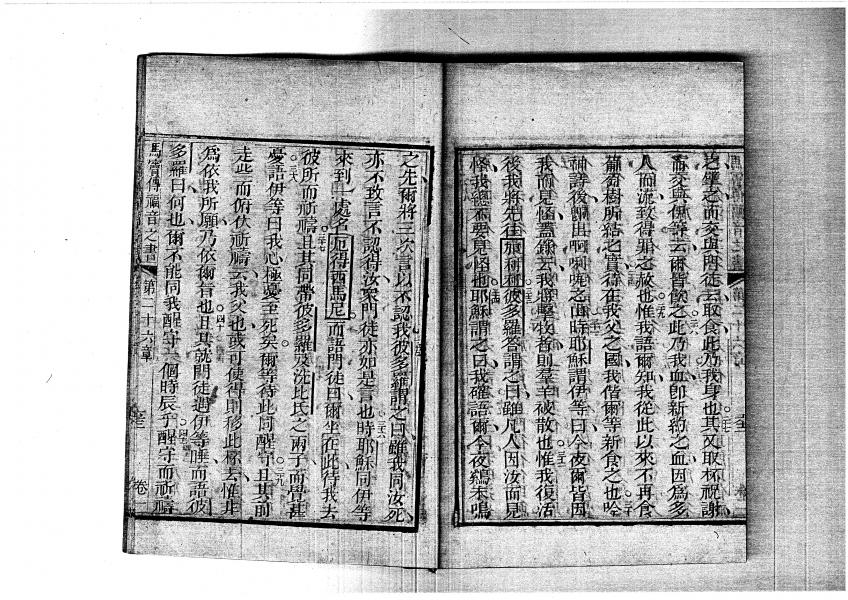 之擘之而交與門徒云取食此乃我身也其又取杯祝謝
而交與伊等云爾皆飲之此乃我血即新約之血因為多
人而流致得罪之赦也惟我語爾知我從此以來不再食
葡萄樹所結之實待在我父之國我偕爾等新食之也唅
神詩後伊出啊唎㖼之山時耶穌謂伊等曰今夜爾皆因
我而見怪蓋錄云我將擊牧者則羣羊被散也惟我復活
後我將先往加利利彼多羅答謂之曰雖凡人因汝而見
怪我總不要見怪也耶穌謂之曰我確語爾今夜鷄未鳴
之先爾將三次言以不認我彼多羅謂之曰雖我同汝死
亦不致言不認得汝眾門徒亦如是言也時耶穌同伊等
來到一處名厄得西馬尼而語門徒曰爾坐在此待我去
彼所而祈禱且其同帶彼多羅及洗比氏之兩子而覺甚
憂語伊等曰我心極憂至死矣爾等待此同醒守且其前
走些而俯伏祈禱云我父也或可使得則移此杯去惟非
為依我所願乃依爾旨也且其就門徒遇伊等睡而語彼
多羅曰何也爾不能同我醒守一個時辰乎醒守而祈禱
馬竇傳福音之書 第二十六章 卷一